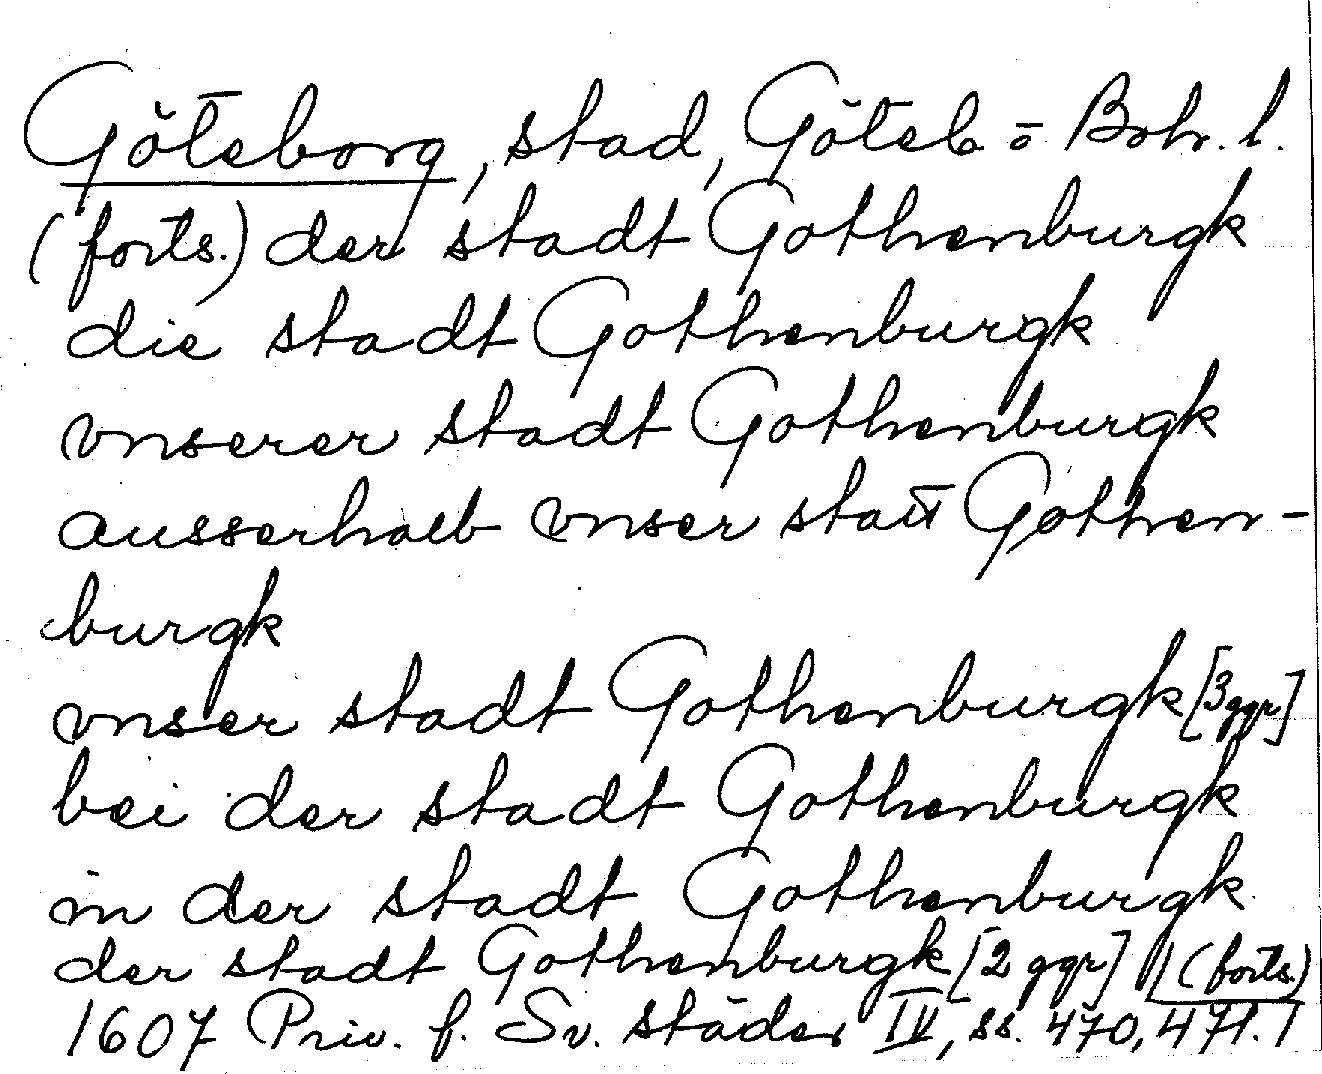 Göteborg, stad, Göteb o Boh. l.
(forts.) der stadt Gothenburgk
die stadt Gothenburgk
vnserer stadt Gothenburgk
ausserhalb vnser statt Gothen-
burgk
vnser stadt Gothenburgk [3 ggr]
bei der stadt Gothenburgk
in der stadt Gothenburgk
der stadt Gothenburgk [2 ggr] (forts.)
1607 Priv. f. Sv. städer IV, ss. 470, 471.